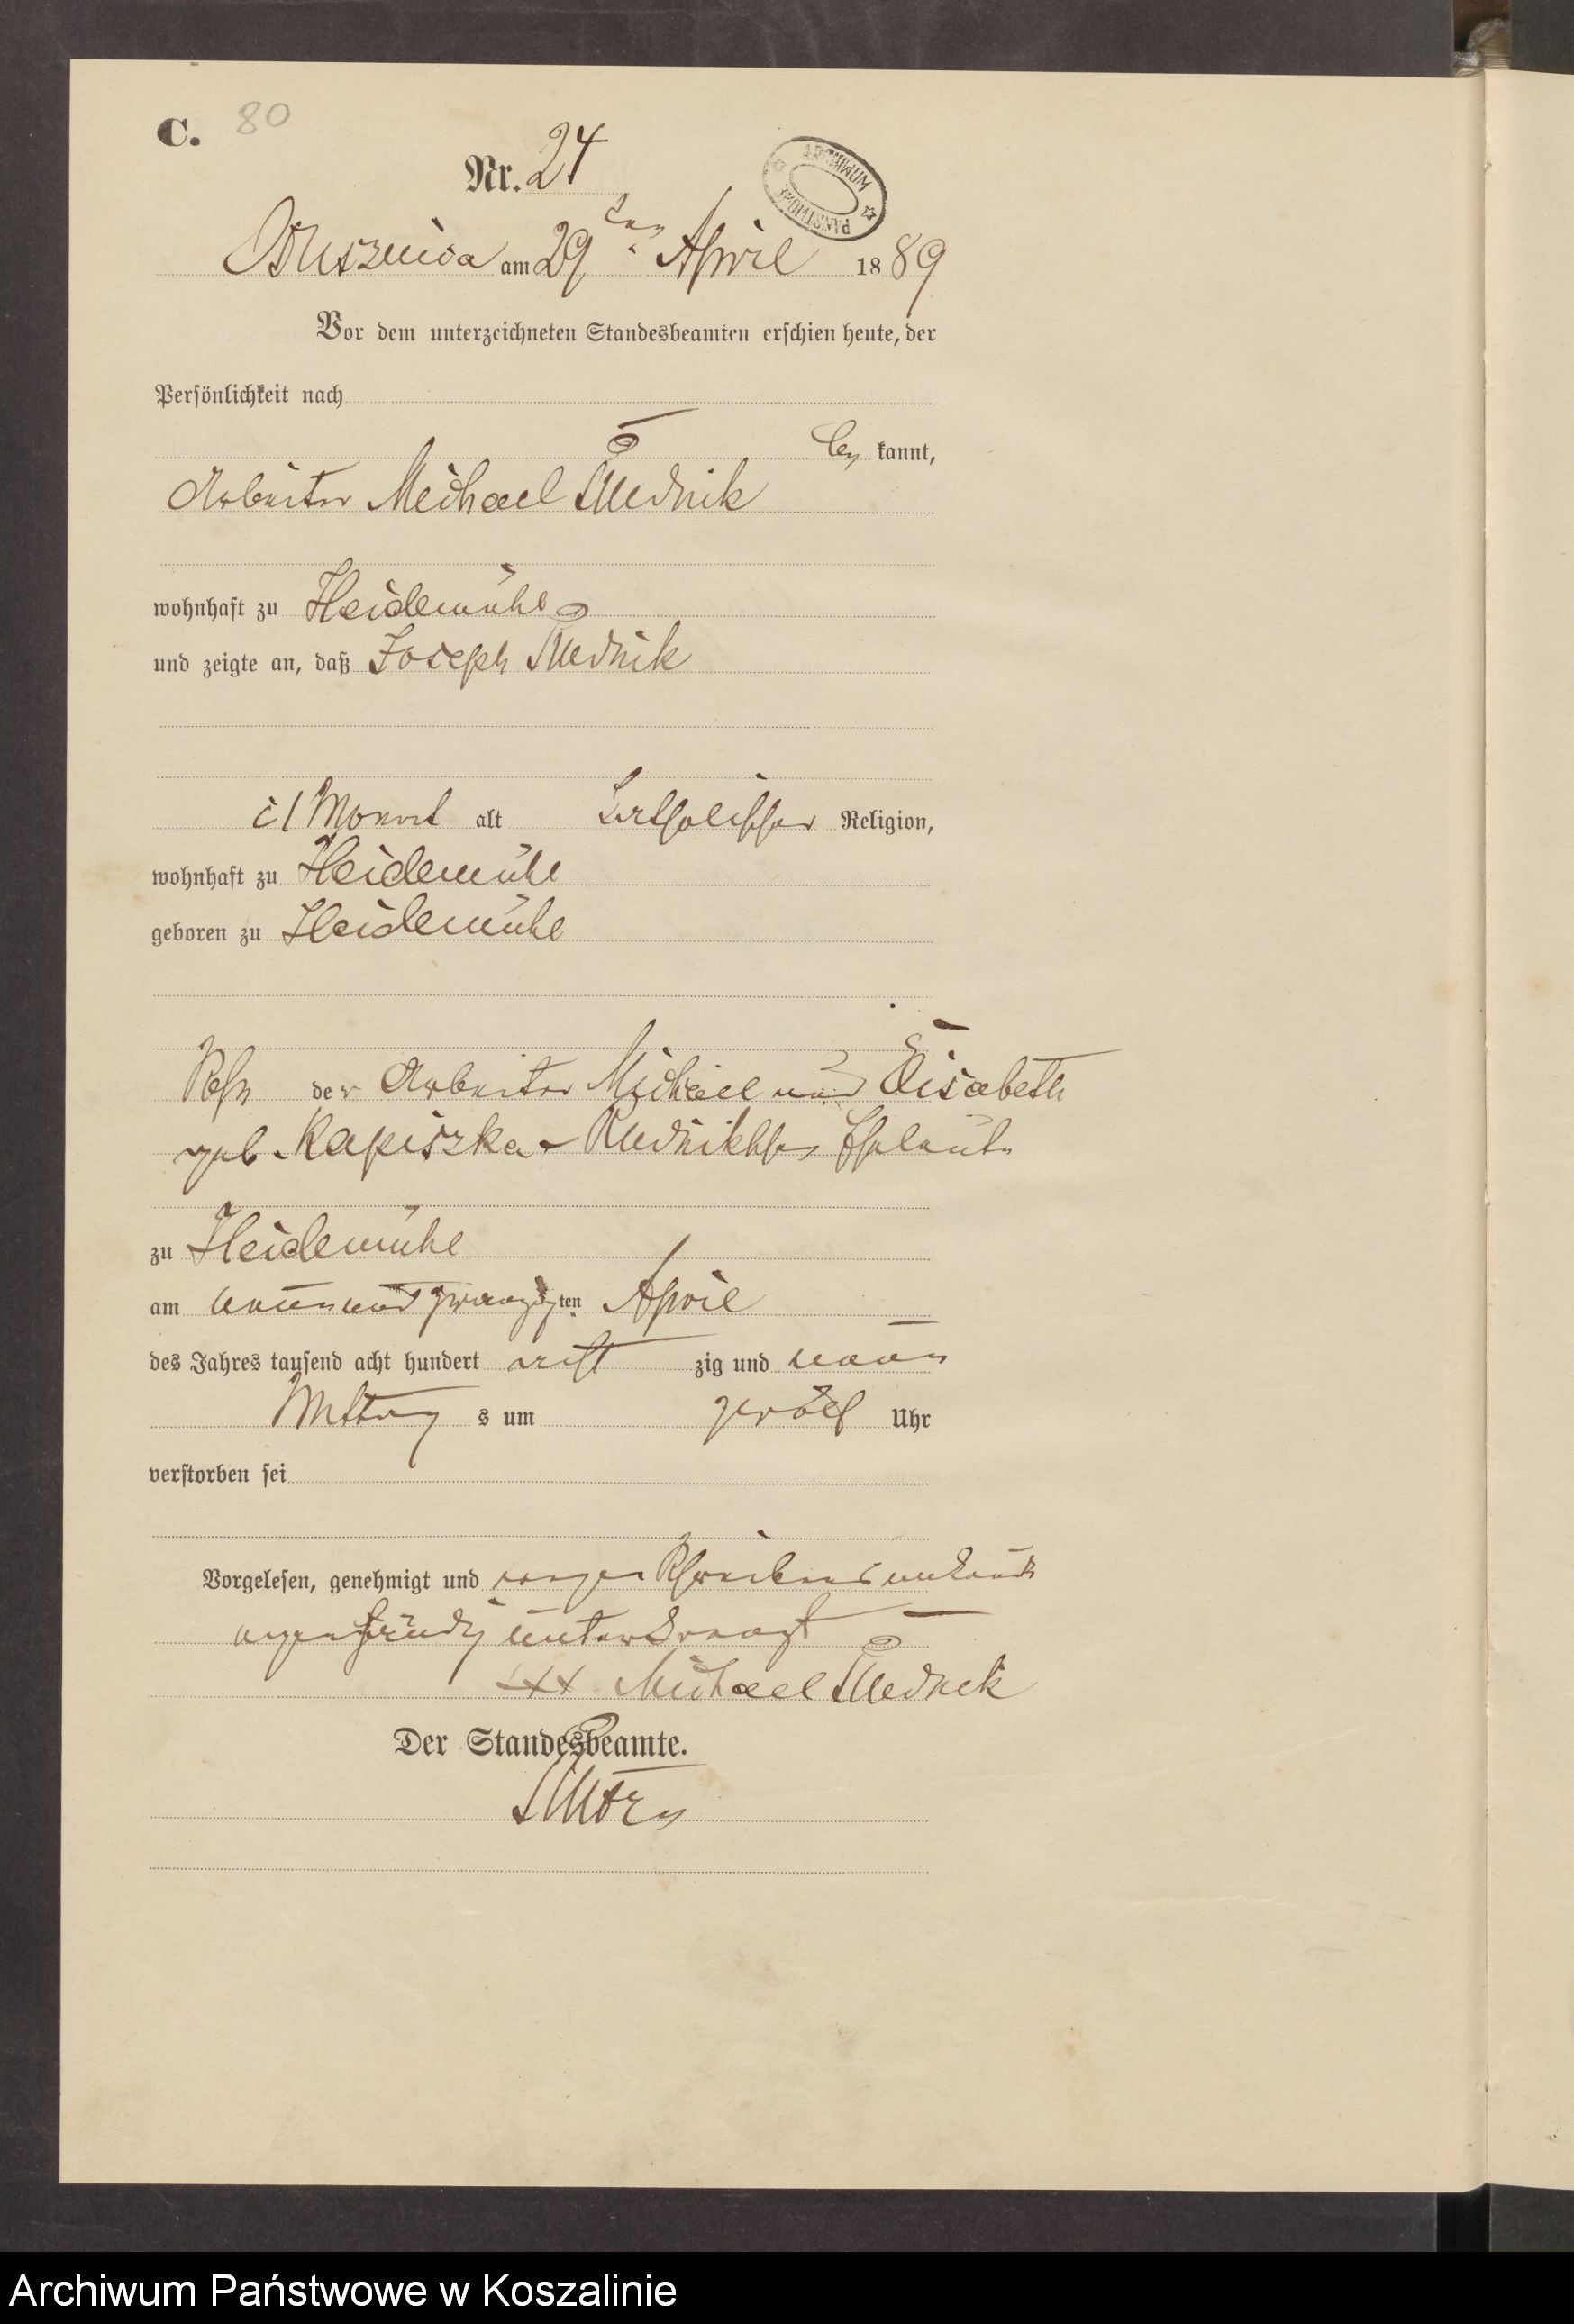 C. 80
Nr. 24
ARCHIWUM PAŃSTWOWE
am 29ten April 1889
Vor dem unterzeichneten Standesbeamten erschien heute, der
Persönlichkeit nach
be kannt,
Arbeiter Michael Rudnik
wohnhaft zu Heidemühl
und zeigte an, daß Joseph Rudnik
1 Monat alt katholischer Religion,
wohnhaft zu Heidemühl
geboren zu Heidemühl
Sohn der Arbeiter Michael und Elisabeth
geb Kapiszka - Rudnikschen Eheleute
zu Heidemühl
am neunundzwanzigten April
des Jahres tausend acht hundert acht zig und neun
Mittag s um zwölf Uhr
verstorben sei
Vorgelesen, genehmigt und wegen Schreibensunkunde
unterkreuzt
xxx Michael Rudnik
Der Standesbeamte.
Archiwum Państwowe w Koszalinie